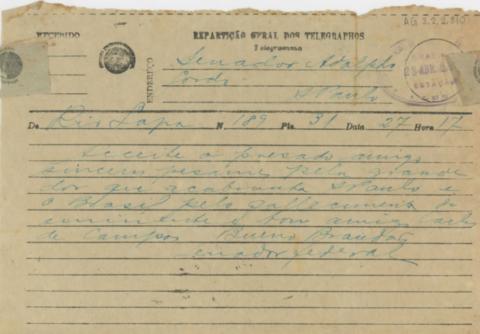 AG 3.2.2.810
RECEBIDO
REPARTIÇÃO GERAL DOS TELEGRAPHOS
Telegramma
ENDEREÇO
Senador Adolpho
Gordo
S Paulo
De Rio Lapa N. 189 Pls. 31 Data 27 Hora 17
Acceite o presado amigo
sinceros pesames pela grande
dor que acabrunha S Paulo e
o Brasil pelo fallecimento do
eminente e bom amigo Carlos
de Campos Bueno Brandão
enador federal